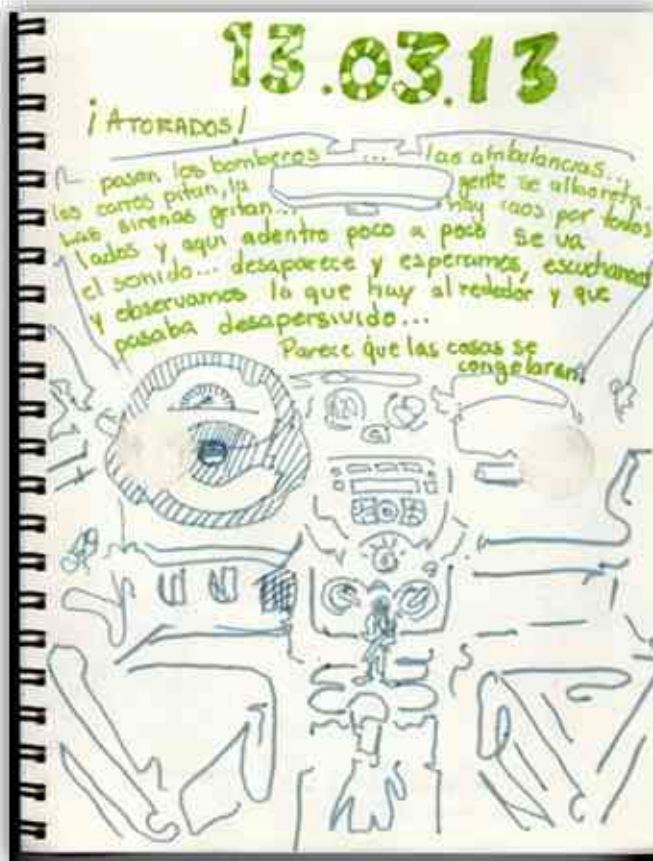 13.03.13
¡ATORADOS!
pasan los bomberos ... las ambulancias...
los carros pitan, la gente se alborota...
Las sirenas gritan... hay caos por todos
lados y aqui adentro poco a poco se va
el sonido... desaparece y esperamos, escuchamos
y observamos lo que hay alrededor y que
pasaba desapersivido...
Parece que las cosas se
congelaran!